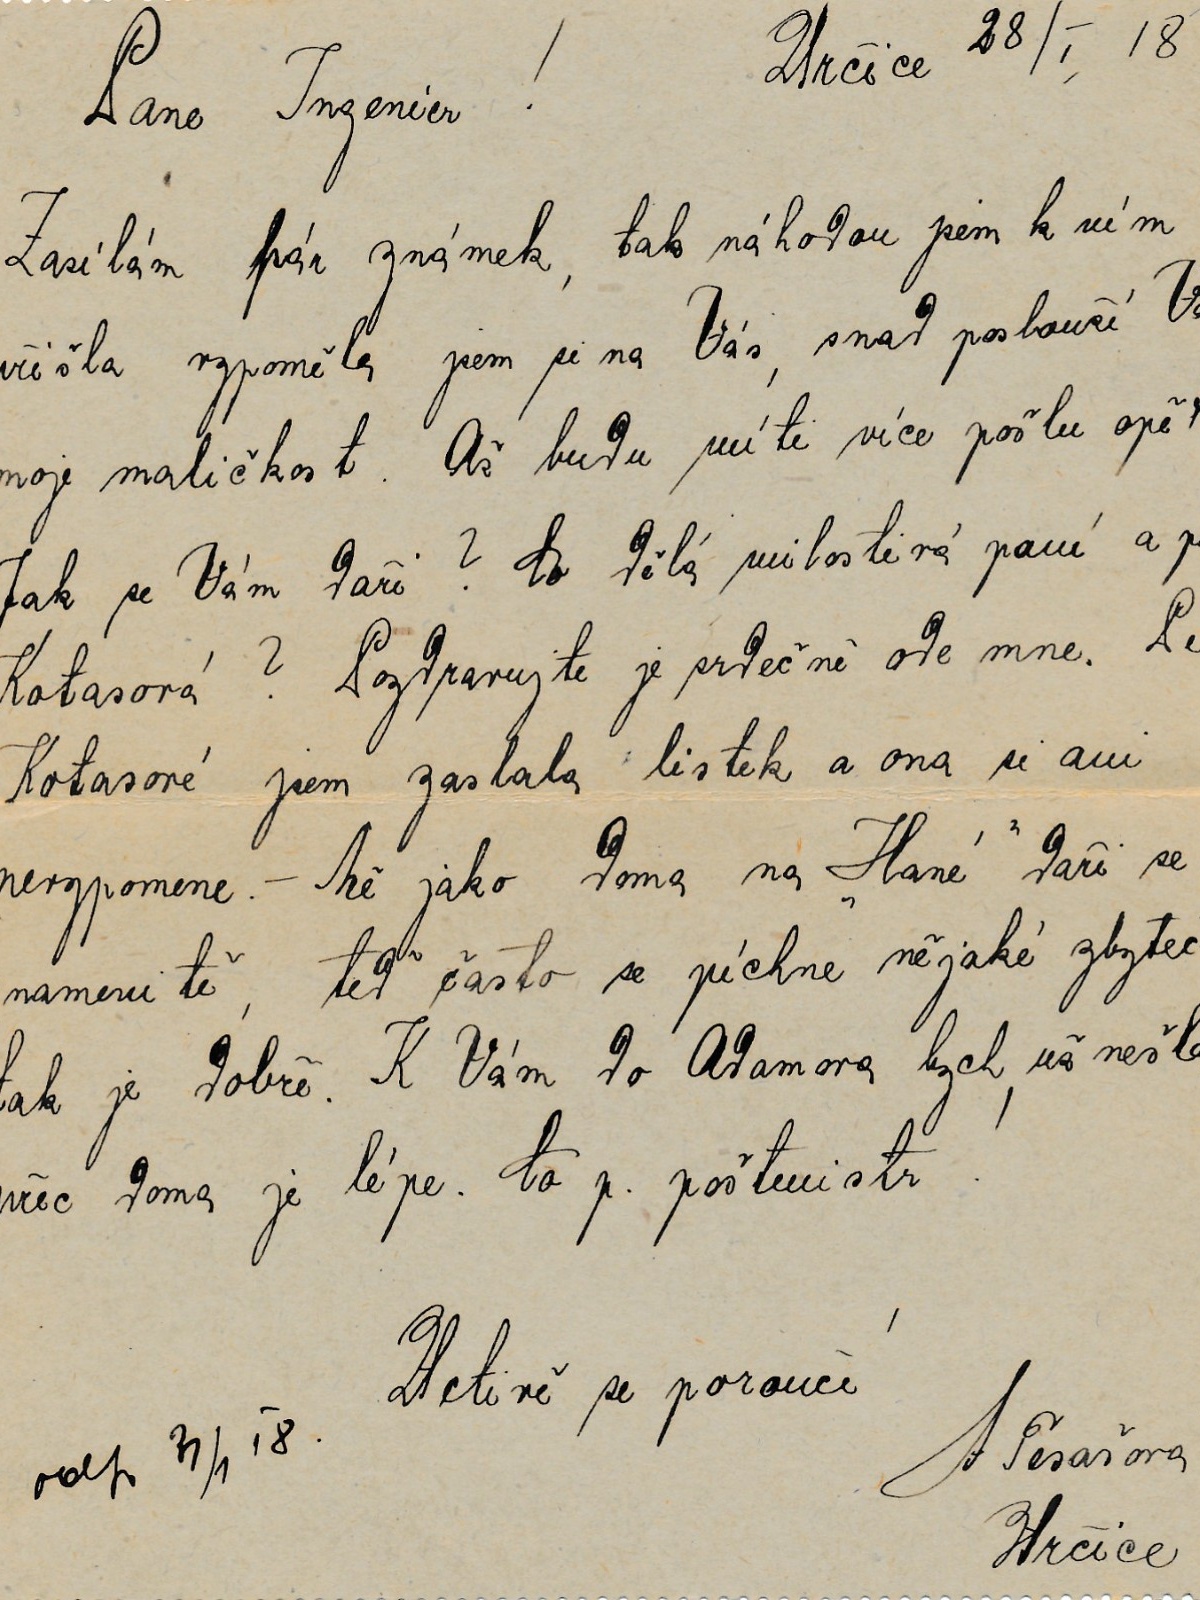 Určice 28/I, 18
Pane Ingenier!
Zasílám pár známek, tak náhodou jsem k ním
přišla vzpoměla jsem si na Vás, snad poslouží Vá
moje maličkost. Až budu míti více pošlu opět
Jak se Vám daří? Co dělá milostivá paní a p
Kotasová? Pozdravujte je srdečně ode mne. Pe
Kotasové jsem zaslala lístek a ona si ani
nevzpomene. – Mě jako doma na „Hané" daří se
namenitě, teď často se píchne nějaké zbyteč
tak je dobře. K Vám do Adamova bych už nešla
přec doma je lépe. Co p. poštmistr!
Uctivě se poroučí
A Tesařova
Určice
odp 31/1 18.